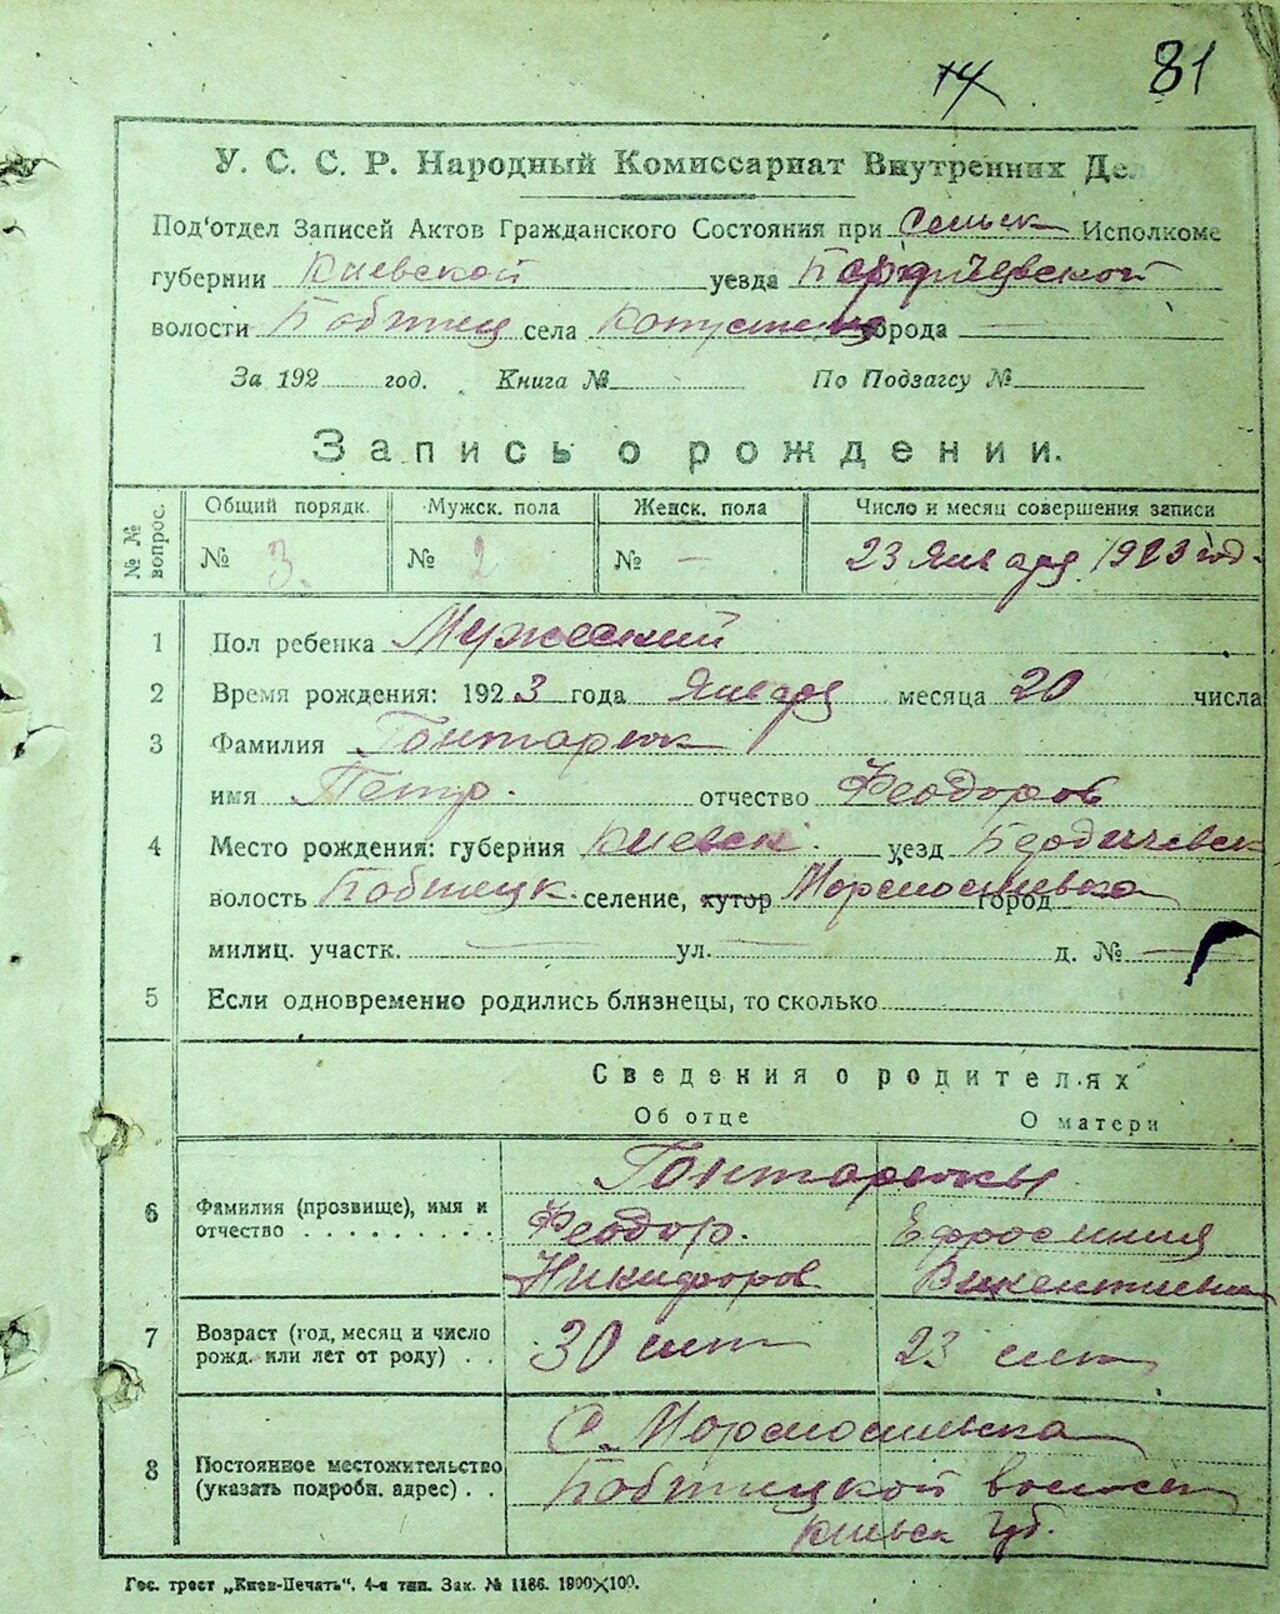 14 81
У. С. С. Р. Народный Комиссариат Внутренних Дел
Под'отдел Записей Актов Гражданского Состояния при Сельск Исполкоме
губернии Киевской уезда Бердичевской
волости Бабинец села города
За 192 год. Книга № По Подзагсу №
Запись о рождении.
№ № вопрос. Общий порядк. Мужск. пола Женск. пола Число и месяц совершения записи
№ 3. № 2 № — 23 Января 1923 год.
1 Пол ребенка Мужеский
2 Время рождения: 192 3 года Января месяца 20 числа
3 Фамилия Гонтарюк
имя Петр. отчество Феодоров
4 Место рождения: губерния Киевск. уезд Бердичевск
волость селение, хутор город
милиц. участк. — ул. — д. № —
5 Если одновременно родились близнецы, то сколько
Сведения о родителях
Об отце О матери
Гонтарюки
6 Фамилия (прозвище), имя и Феодор. Ефросиния
отчество . . . . . . . . . Никифоров Викентиевна
7 Возраст (год, месяц и число 30 лет 23 лет
рожд. или лет от роду) . .
С.
8 Постоянное местожительство волости
(указать подробн. адрес) . . Киевск губ.
Гос. трест „Киев-Печать". 4-я тип. Зак. № 1186. 1900×100.